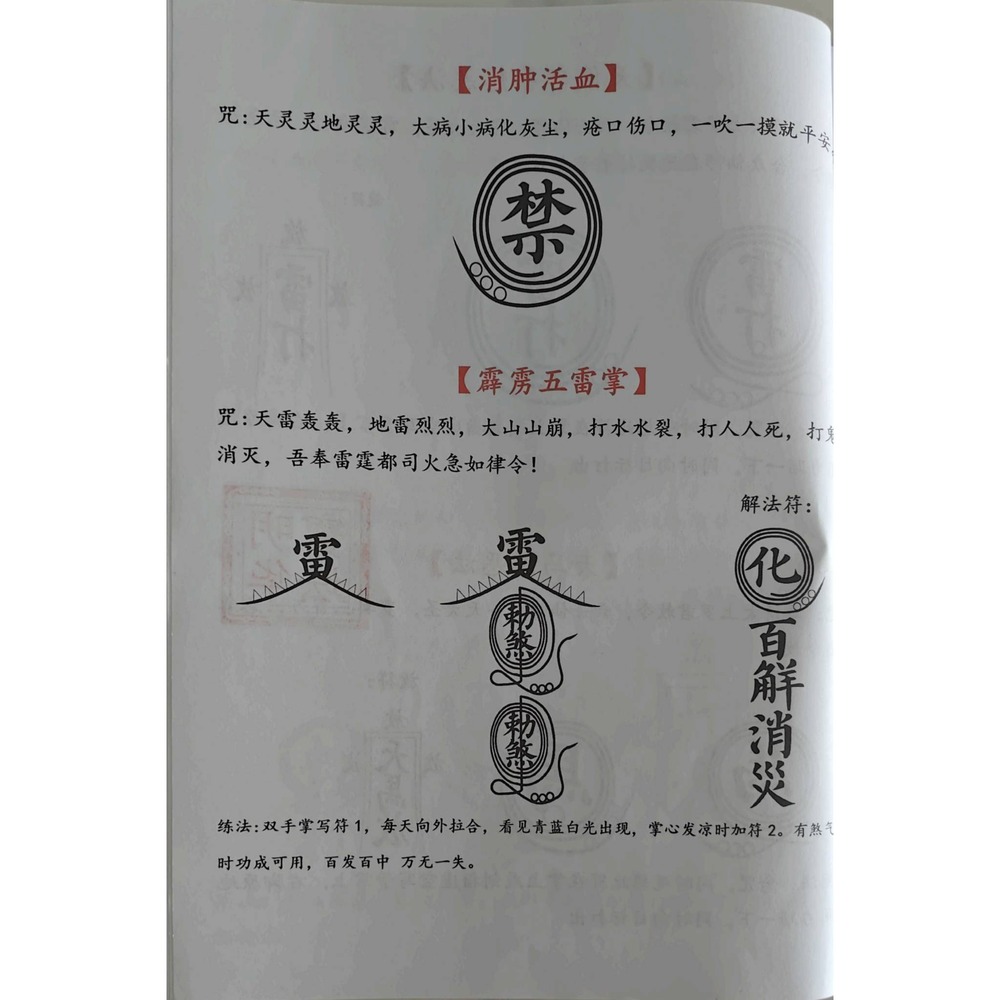 【消肿活血】
咒:天灵灵地灵灵，大病小病化灰尘，疮口伤口，一吹一摸就平安
禁
【霹雳五雷掌】
咒:天雷轰轰，地雷烈烈，大山山崩，打水水裂，打人人死，打
消灭，吾奉雷霆都司火急如律令！
解法符：
雷
雷
勅煞
勅煞
化
百解消災
练法:双手掌写符1，每天向外拉合，看见青蓝白光出现，掌心发凉时加符2。有煞气
时功成可用，百发百中 万无一失。